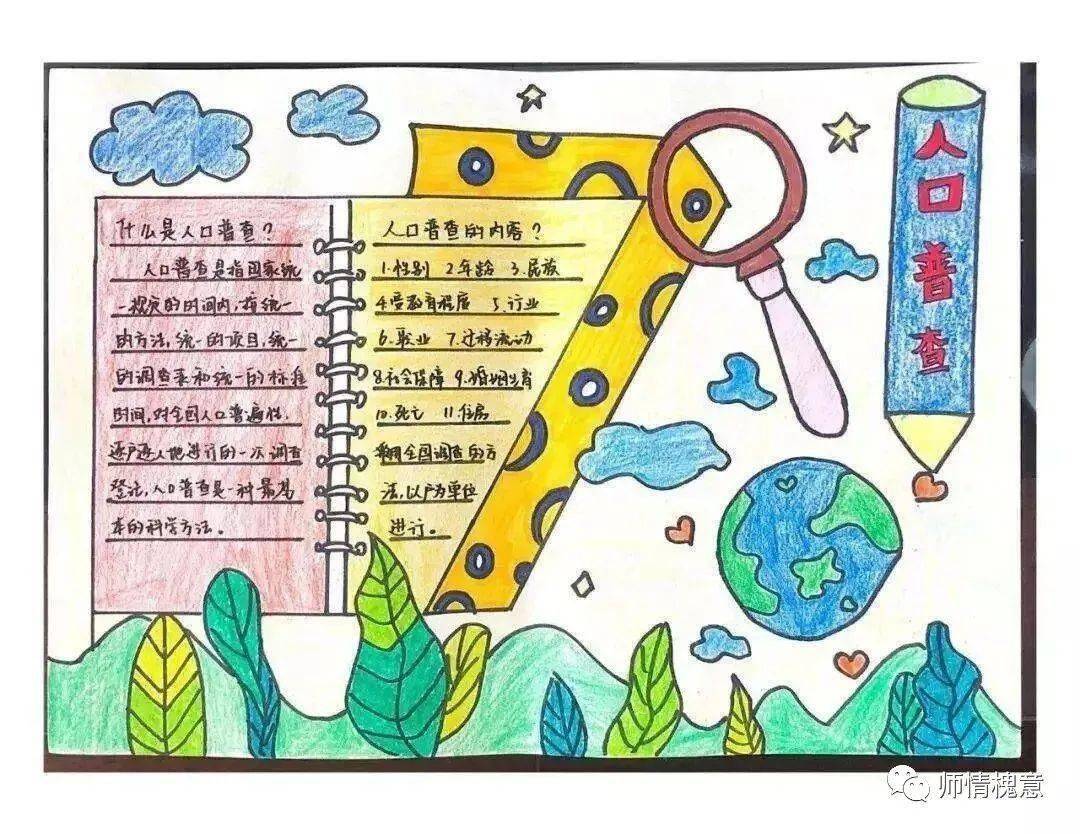 什么是人口普查?
人口普查是指国家统
一规定的时间内,按统一
的方法,统一的项目,统一
的调查表和统一的标准
时间,对全国人口普遍性.
逐户逐人地进行的一次调查
登记,人口普查是一种最基
本的科学方法。
人口普查的内容?
1.性别 2.年龄 3.民族
4.受教育程度 5.行业
6.职业 7.迁移流动
8.社会保障 9.婚姻生育
10.死亡 11.住房
用全国调查的方
法,以户为单位
进行。
人口普查
师情槐意